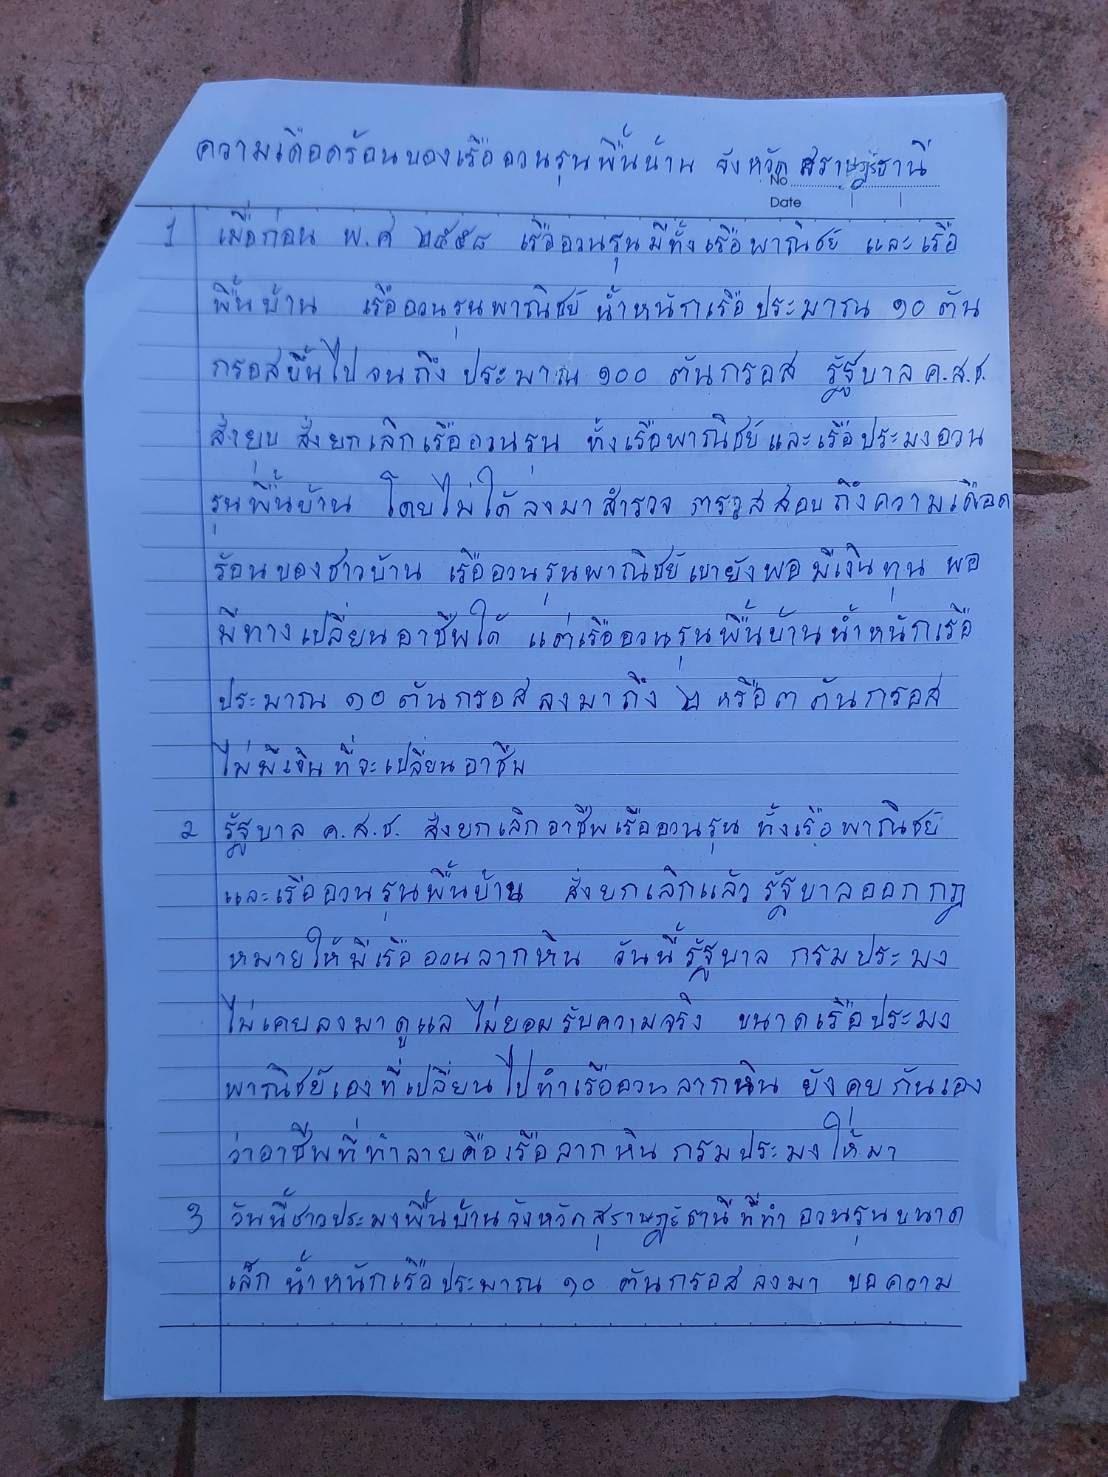 ความเดือดร้อนของเรืออวนรุนพื้นบ้าน จังหวัด สุราษฎร์ธานี
No
Date
1 เมื่อก่อน พ.ศ ๒๕๕๘ เรืออวนรุนมีทั้งเรือพาณิชย์ และเรือ
พื้นบ้าน เรืออวนรุนพาณิชย์ น้ำหนักเรือ ประมาณ ๑๐ ตัน
กรอสขึ้นไป จนถึง ประมาณ ๑๐๐ ตันกรอส รัฐบาล ค.ส.ช.
สั่งยุบ สั่งยกเลิกเรืออวนรุน ทั้งเรือพาณิชย์ และเรือประมงอวน
รุนพื้นบ้าน โดยไม่ได้ลงมาสำรวจ ตรวจสอบถึงความเดือด
ร้อนของชาวบ้าน เรืออวนรุนพาณิชย์ เขายังพอมีเงินทุน พอ
มีทางเปลี่ยนอาชีพได้ แต่เรืออวนรุนพื้นบ้านน้ำหนักเรือ
ประมาณ ๑๐ ตันกรอส ลงมาถึง ๒ หรือ ๓ ตันกรอส
ไม่มีเงินที่จะเปลี่ยนอาชีพ
2 รัฐบาล ค.ส.ช. สั่งยกเลิกอาชีพเรืออวนรุน ทั้งเรือพาณิชย์
และเรืออวนรุนพื้นบ้าน สั่งยกเลิกแล้ว รัฐบาลออกกฎ
หมายให้มีเรืออวนลากหิน วันนี้รัฐบาล กรมประมง
ไม่เคยลงมาดูแล ไม่ยอมรับความจริง ขนาดเรือประมง
พาณิชย์เองที่เปลี่ยนไปทำเรืออวนลากหิน ยังคุยกันเอง
ว่าอาชีพที่ทำลายคือเรือลากหิน กรมประมงให้มา
3 วันนี้ชาวประมงพื้นบ้านจังหวัดสุราษฎร์ธานีที่ทำ อวนรุนขนาด
เล็ก น้ำหนักเรือประมาณ ๑๐ ตันกรอส ลงมา ขอความ